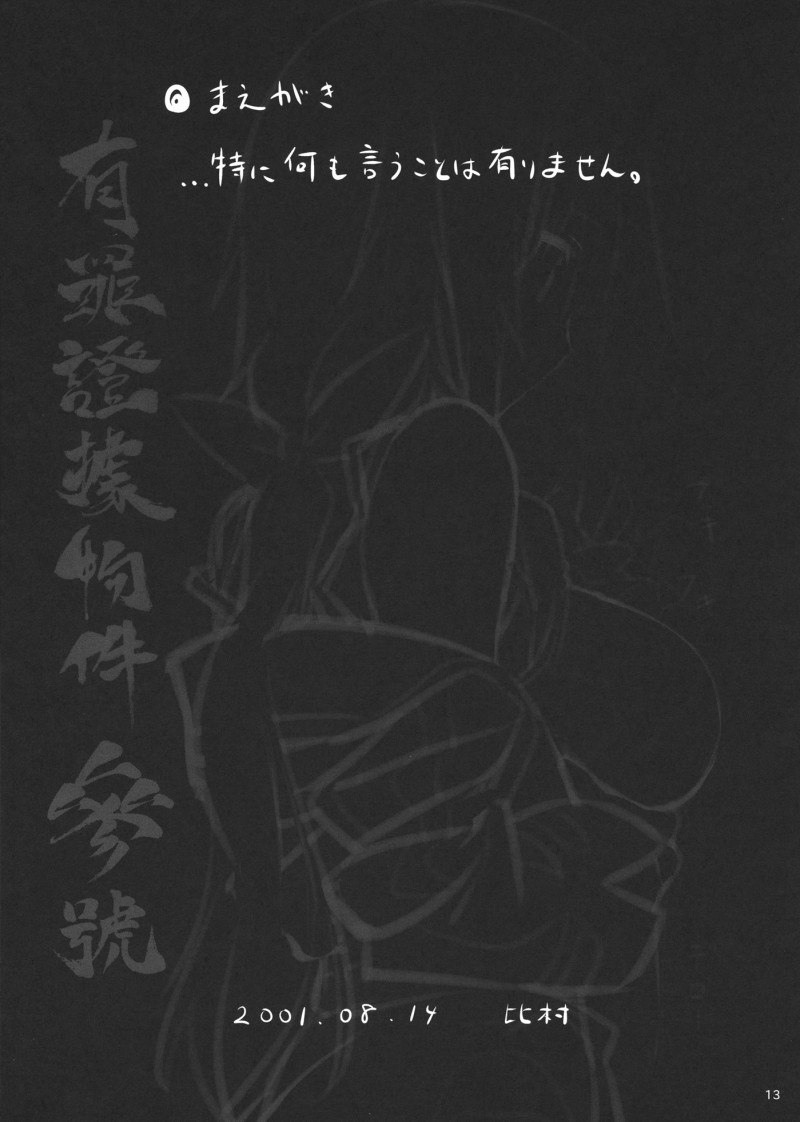 ◎まえがき
…特に何も言うことは有りません。
有罪證據物件 參號
2001.08.14 比村
13